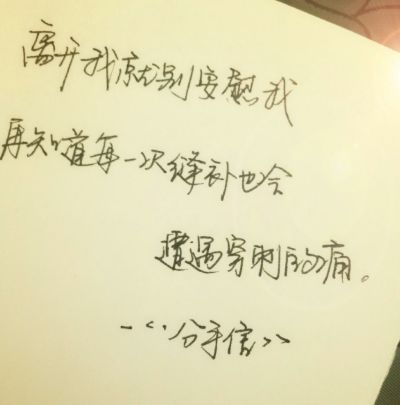 离开我就别安慰我
再知道每一次缝补也会
遭遇穿刺的痛。
—《分手信》